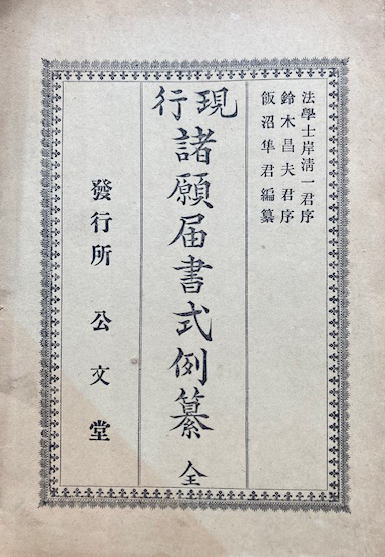 法學士岸清一君序
鈴木昌夫君序
飯沼隼君編纂
現行
諸願届書式例纂 全
發行所 公文堂